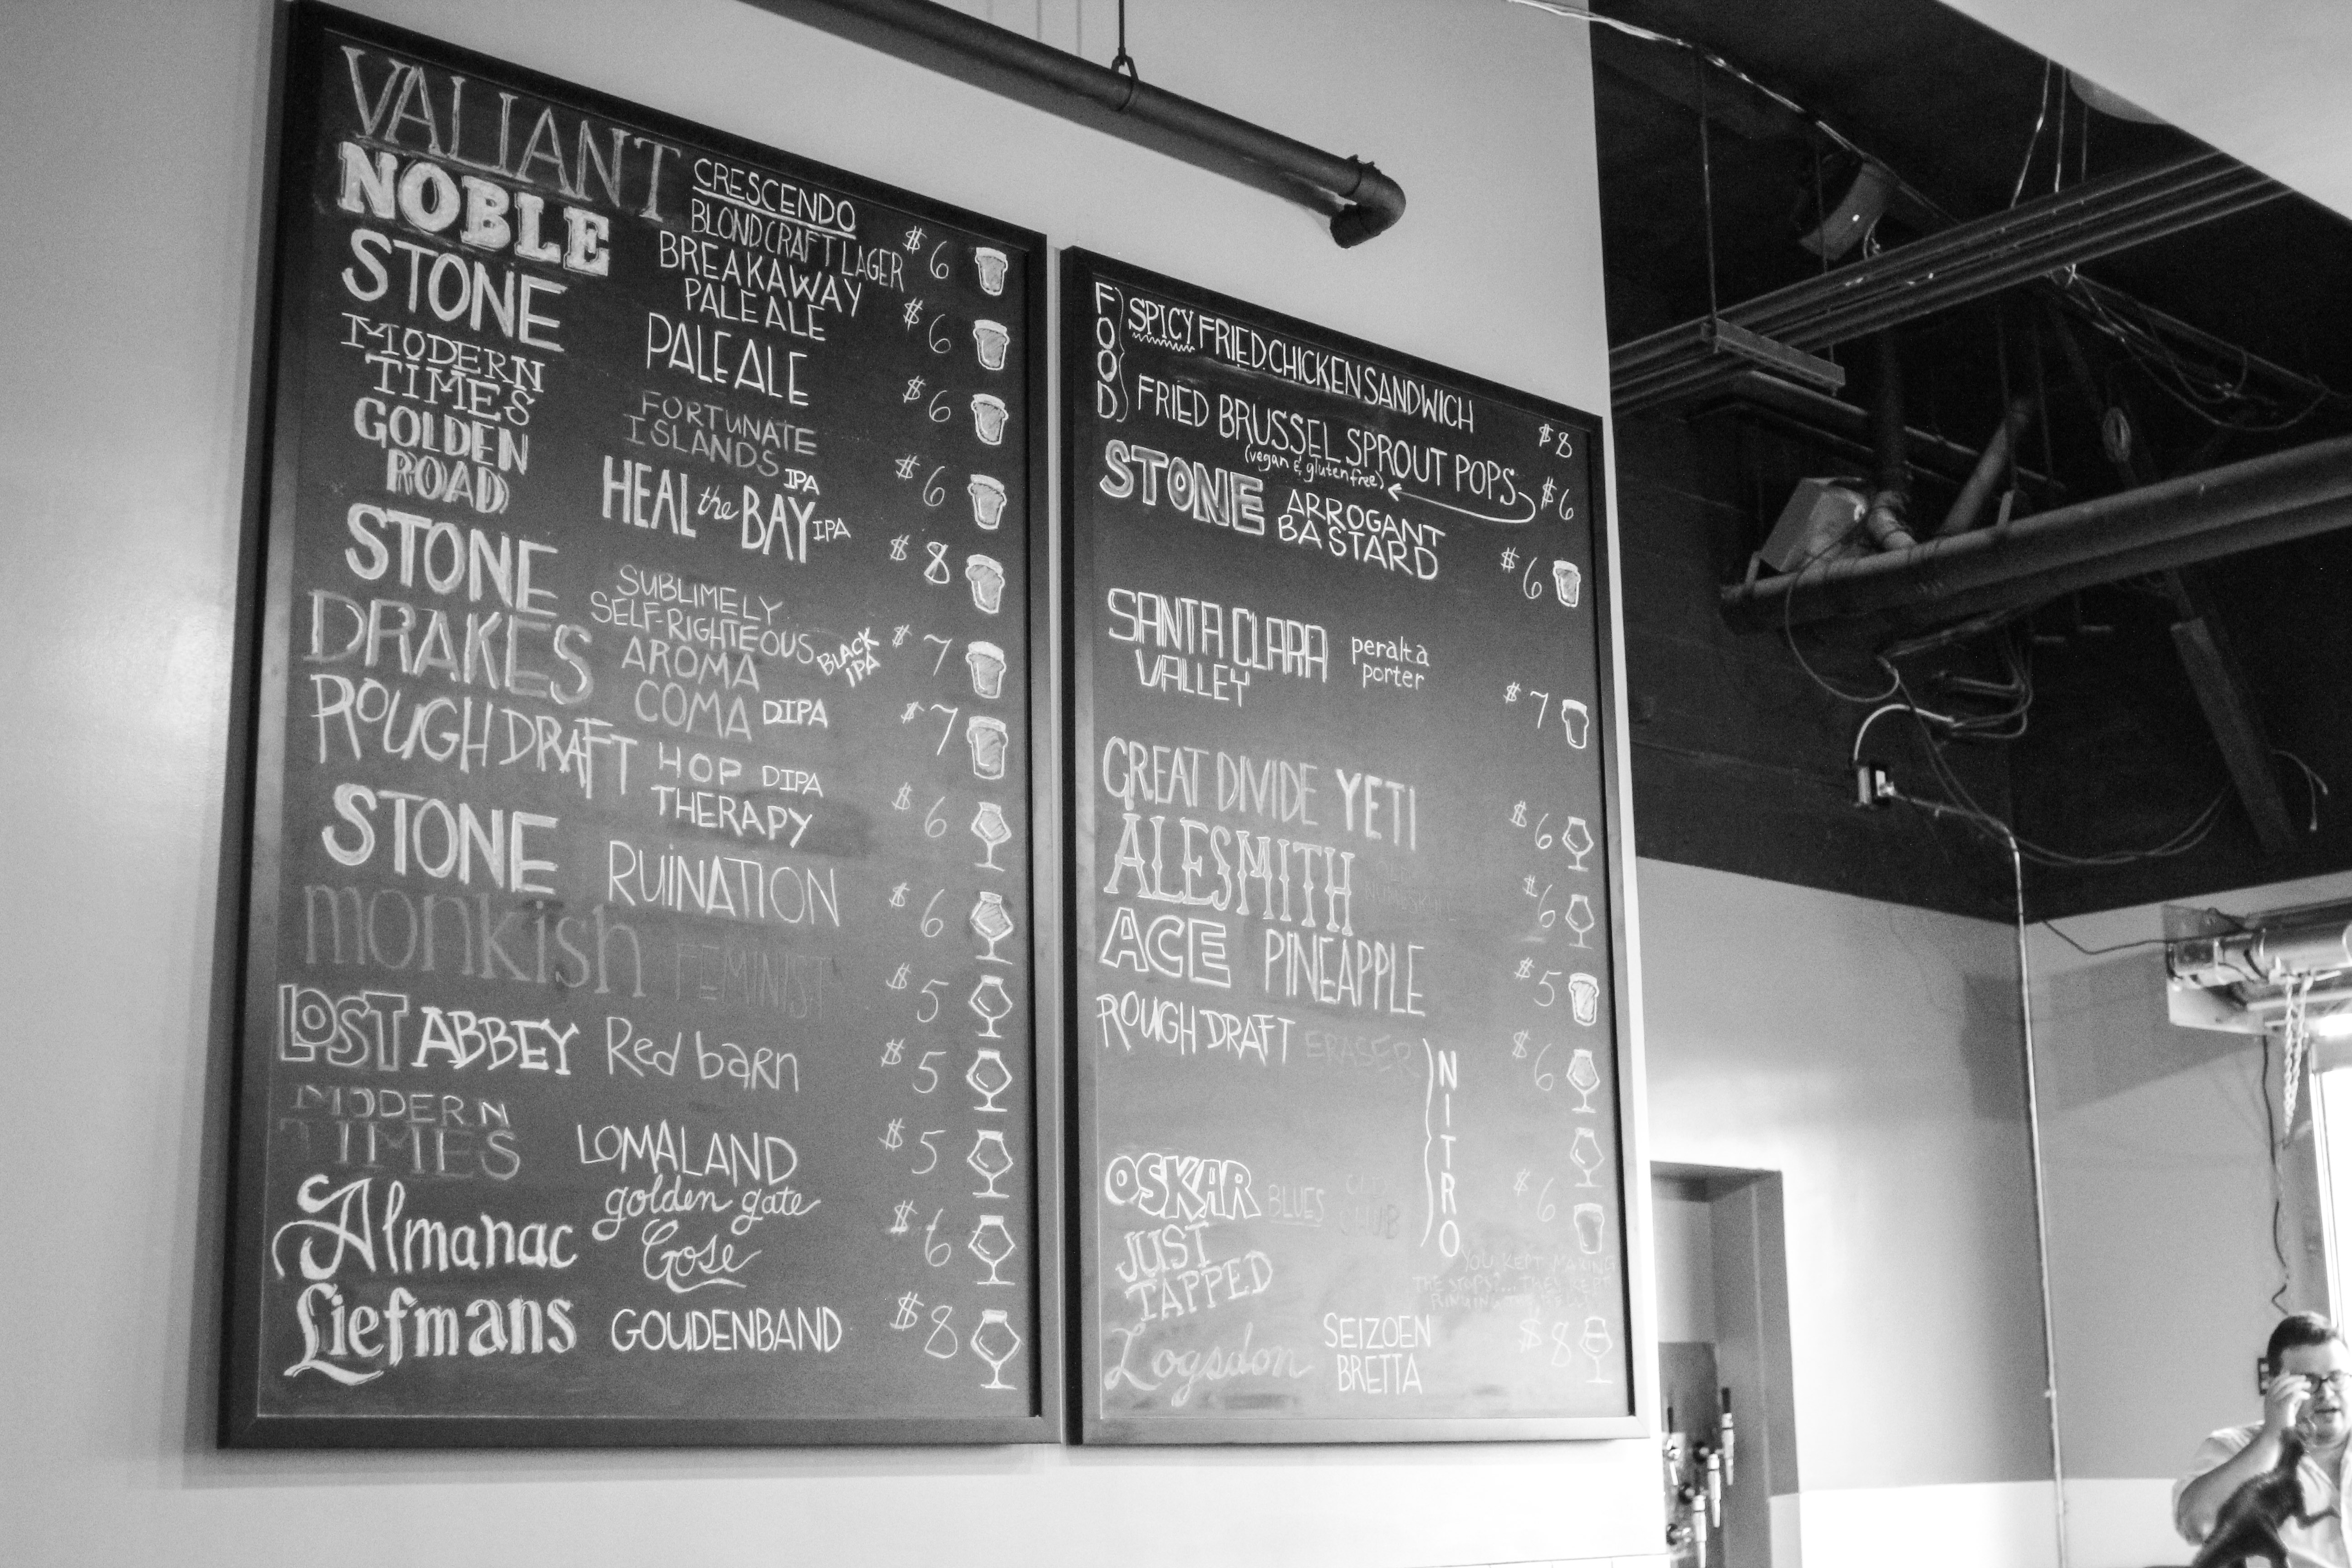 VALIANT CRESCENDO
BLOND CRAFT LAGER $6
NOBLE BREAKAWAY
PALE ALE $6
STONE PALE ALE $6
MODERN
TIMES FORTUNATE
ISLANDS IPA $6
GOLDEN
ROAD HEAL the BAY IPA $8
STONE SUBLIMELY
SELF-RIGHTEOUS BLACK
IPA $7
DRAKES AROMA
COMA DIPA $7
ROUGH DRAFT HOP DIPA
THERAPY $6
STONE RUINATION $6
monkish FEMINIST $5
LOST ABBEY Red barn $5
MODERN
TIMES LOMALAND $5
Almanac golden gate
Gose $6
Liefmans GOUDENBAND $8
FOOD
SPICY FRIED CHICKEN SANDWICH $8
FRIED BRUSSEL SPROUT POPS $6
(vegan & gluten free)
STONE ARROGANT
BASTARD $6
SANTA CLARA
VALLEY peralta
porter $7
GREAT DIVIDE YETI $6
ALESMITH $6
ACE PINEAPPLE $5
ROUGH DRAFT ERASER $6
NITRO
OSKAR BLUES $6
JUST
TAPPED
YOU KEPT MAKING
Logsdon SEIZOEN
BRETTA $8